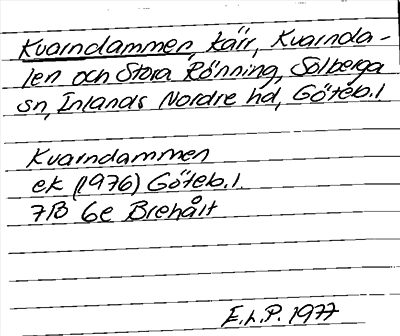 Kvarndammen, kärr, Kvarnda-
len och Stora Rönning, Solberga
sn, Inlands Nordre hd, Göteb. l.
Kvarndammen
ek (1976) Göteb. l.
7B 6e Brehålt
E.h.P. 1977